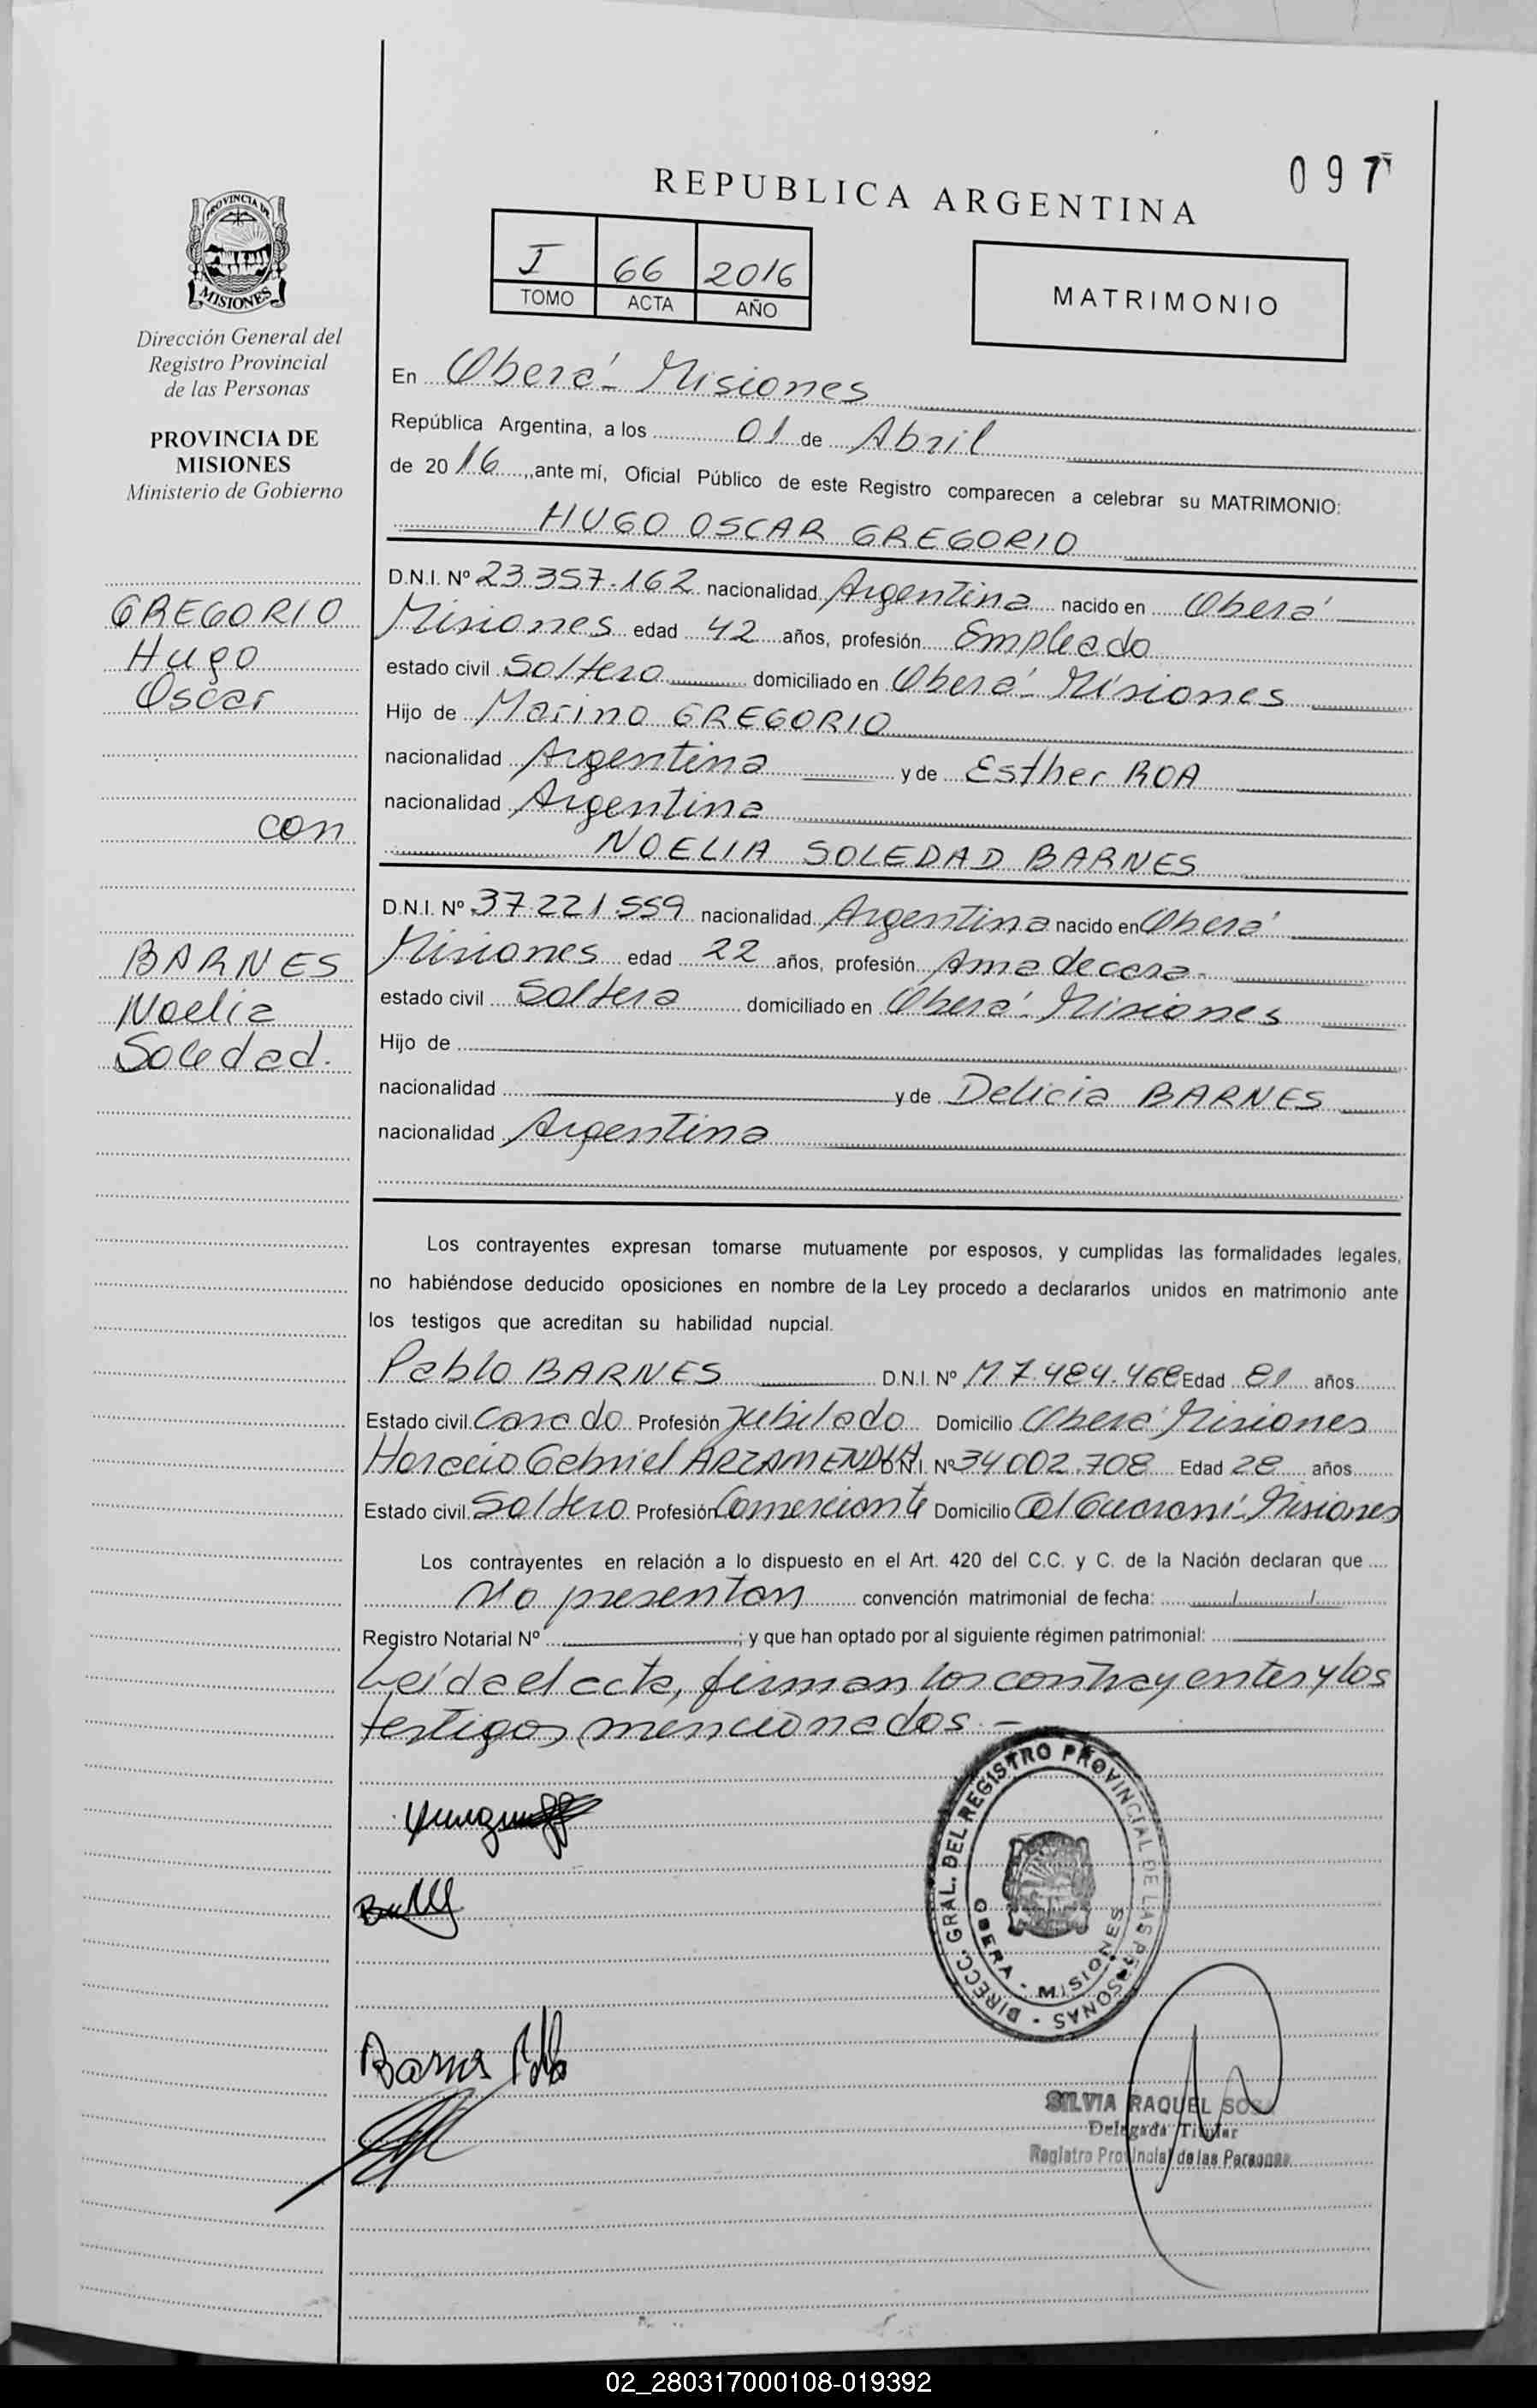 097
REPUBLICA ARGENTINA
PROVINCIA DE
MISIONES
Dirección General del
Registro Provincial
de las Personas
PROVINCIA DE
MISIONES
Ministerio de Gobierno
I 66 2016
TOMO ACTA AÑO
MATRIMONIO
En Oberá - Misiones
República Argentina, a los 01 de Abril
de 2016, ante mí, Oficial Público de este Registro comparecen a celebrar su MATRIMONIO:
HUGO OSCAR GREGORIO
GREGORIO
Hugo
Oscar
con
BARNES
Noelia
Soledad.
D.N.I. Nº 23.357.162 nacionalidad Argentina nacido en Oberá
Misiones edad 42 años, profesión Empleado
estado civil Soltero domiciliado en Oberá - Misiones
Hijo de Marino GREGORIO
nacionalidad Argentina y de Esther ROA
nacionalidad Argentina
NOELIA SOLEDAD BARNES
D.N.I. Nº 37.221.559 nacionalidad Argentina nacido en Oberá
Misiones edad 22 años, profesión Ama de casa.
estado civil Soltera domiciliado en Oberá - Misiones
Hijo de
nacionalidad y de Delicia BARNES
nacionalidad Argentina
Los contrayentes expresan tomarse mutuamente por esposos, y cumplidas las formalidades legales,
no habiéndose deducido oposiciones en nombre de la Ley procedo a declararlos unidos en matrimonio ante
los testigos que acreditan su habilidad nupcial.
Pablo BARNES D.N.I. Nº M7.484.468 Edad 81 años
Estado civil Casado Profesión Jubilado Domicilio Oberá Misiones
Horacio Gabriel ARZAMENDIA D.N.I. Nº 34.002.708 Edad 28 años
Estado civil Soltero Profesión Comerciante Domicilio Col Guaraní - Misiones
Los contrayentes en relación a lo dispuesto en el Art. 420 del C.C. y C. de la Nación declaran que
No presentan convención matrimonial de fecha: / /
Registro Notarial Nº ; y que han optado por al siguiente régimen patrimonial:
Leída el acta, firman los contrayentes y los
testigos mencionados. -
DIRECC. GRAL. DEL REGISTRO PROVINCIAL DE LAS PERSONAS -
OBERA - MISIONES
Barnes Pablo
SILVIA RAQUEL SOSA
Delegada Titular
Registro Provincial de las Personas
02_280317000108-019392